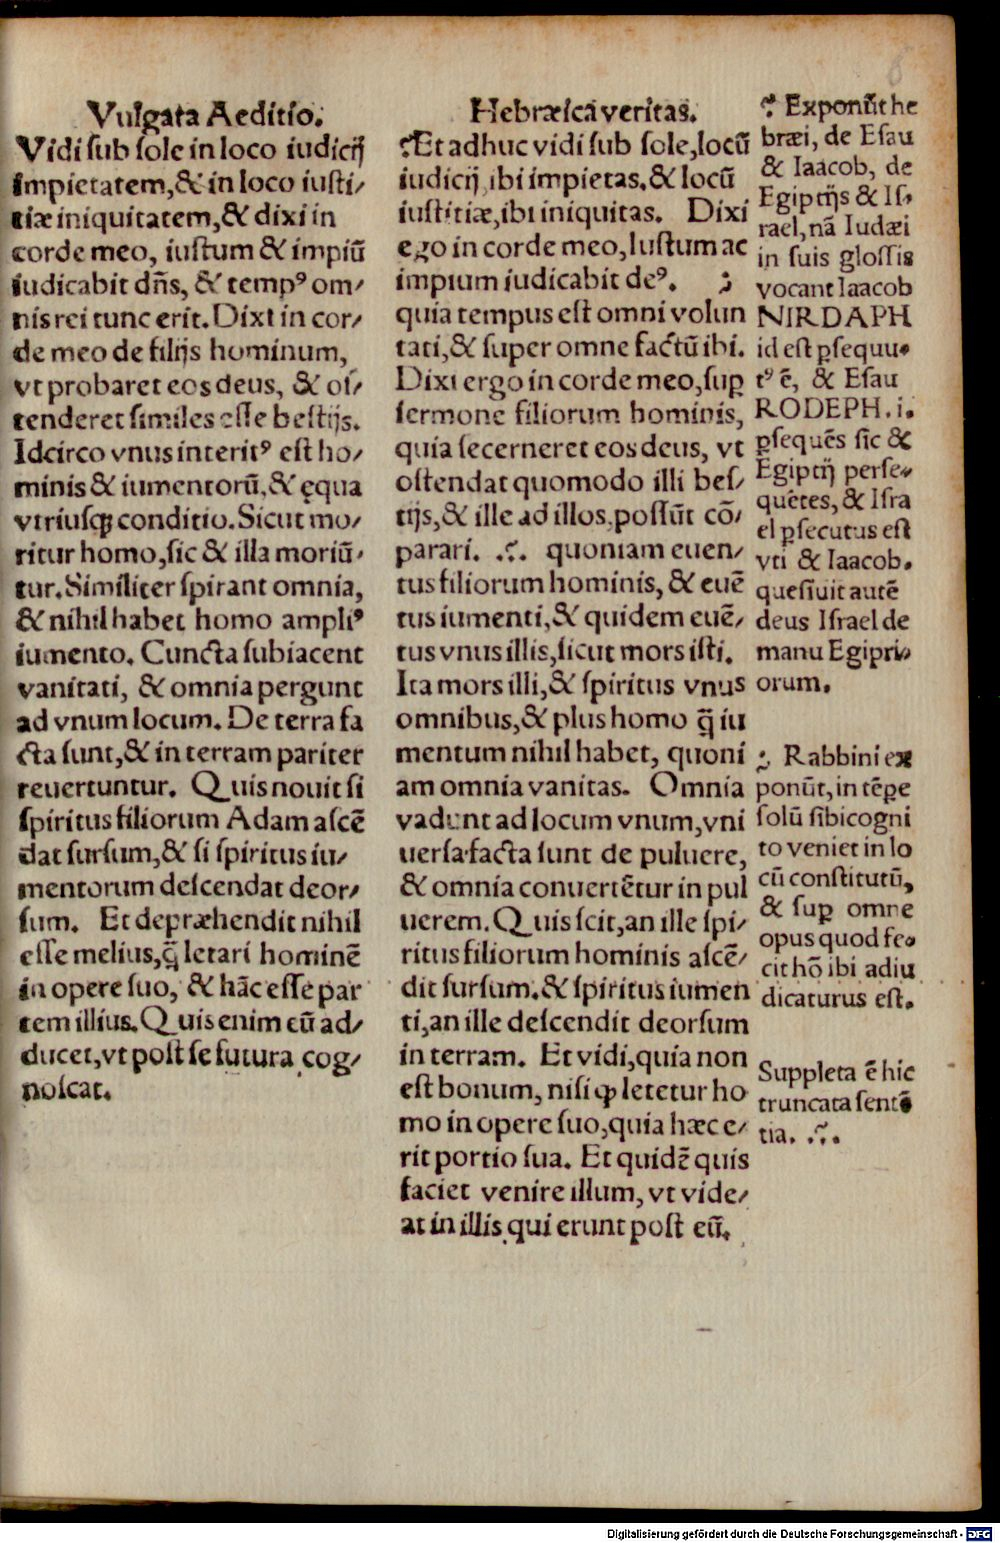 Vulgata Aeditio.
Vidi ſub ſole in loco iudicij
impietatem,& in loco iuſti/
tiæ iniquitatem,& dixi in
corde meo, iuſtum & impiũ
iudicabit dñs, & tempꝰ om/
nis rei tunc erit. Dixi in cor/
de meo de filijs hominum,
vt probaret eos deus, & oſ/
tenderet ſimiles eſſe beſtijs.
Idcirco vnus interitꝰ eſt ho/
minis & iumentorũ,& ęqua
vtriuſqꝫ conditio. Sicut mo/
ritur homo,ſic & illa moriũ/
tur. Similiter ſpirant omnia,
& nihil habet homo ampliꝰ
iumento. Cuncta ſubiacent
vanitati, & omnia pergunt
ad vnum locum. De terra fa
cta ſunt,& in terram pariter
reuertuntur. Quis nouit ſi
ſpiritus filiorum Adam aſcẽ
dat ſurſum,& ſi ſpiritus iu/
mentorum deſcendat deor/
ſum. Et depræhendit nihil
eſſe melius,q̃ letari hominẽ
in opere ſuo, & hãc eſſe par
tem illius. Quis enim eũ ad/
ducet,vt poſt ſe futura cog/
noſcat.
Hebræica veritas.
Et adhuc vidi ſub ſole,locũ
iudicij ibi impietas.& locũ
iuſtitiæ,ibi iniquitas. Dixi
ego in corde meo,Iuſtum ac
impium iudicabit deꝰ.
quia tempus eſt omni volun
tati,& ſuper omne factũ ibi.
Dixi ergo in corde meo,ſuꝑ
ſermone filiorum hominis,
quia ſecerneret eos deus, vt
oſtendat quomodo illi beſ/
tijs,& ille ad illos,poſſũt cõ/
parari. .∵. quoniam euen/
tus filiorum hominis, & euẽ
tus iumenti,& quidem euẽ/
tus vnus illis,ſicut mors iſti.
Ita mors illi,& ſpiritus vnus
omnibus,& plus homo q̃ iu
mentum nihil habet, quoni
am omnia vanitas. Omnia
vadunt ad locum vnum,vni
uerſa facta ſunt de puluere,
& omnia conuertẽtur in pul
uerem. Quis ſcit,an ille ſpi/
ritus filiorum hominis aſcẽ/
dit ſurſum.& ſpiritus iumen
ti,an ille deſcendit deorſum
in terram. Et vidi,quia non
eſt bonum, niſi ꝙ letetur ho
mo in opere ſuo,quia hæc e/
rit portio ſua. Et quidẽ quis
faciet venire illum, vt vide/
at in illis qui erunt poſt eũ.
Exponũt he
bræi, de Eſau
& Iaacob, de
Egiptijs & Iſ/
rael, nã Iudæi
in ſuis gloſſis
vocant Iaacob
NIRDAPH
id eſt ꝑſequu/
tꝰ ẽ, & Eſau
RODEPH. i.
ꝑſequẽs ſic &
Egiptij perſe/
quẽtes, & Iſra
el ꝑſecutus eſt
vti & Iaacob.
queſiuit autẽ
deus Iſrael de
manu Egipti/
orum.
Rabbini ex
ponũt, in tẽꝑe
ſolũ ſibi cogni
to veniet in lo
cũ conſtitutũ,
& ſuꝑ omne
opus quod fe/
cit hõ ibi adiu
dicaturus eſt.
Suppleta ẽ hic
truncata ſentẽ
tia. .∵.
6
Digitalisierung gefördert durch die Deutsche Forschungsgemeinschaft - DFG